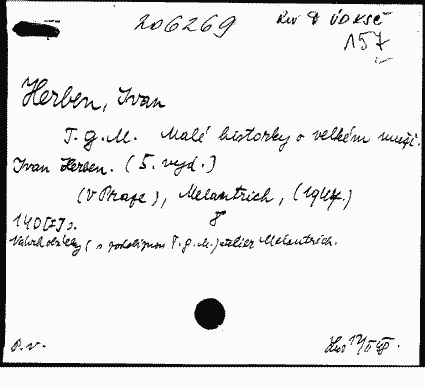 206269
ÚDKSČ
157
Herben, Ivan
T.g.M. Malé historky o velkém muži.
Ivan Herben. (5. vyd.)
(V Praze), Melantrich, (1947.)
8°
140 [I] s.
Návrh obálky (s podobiznou T.g.M.) atelier Melantrich.
P.v.